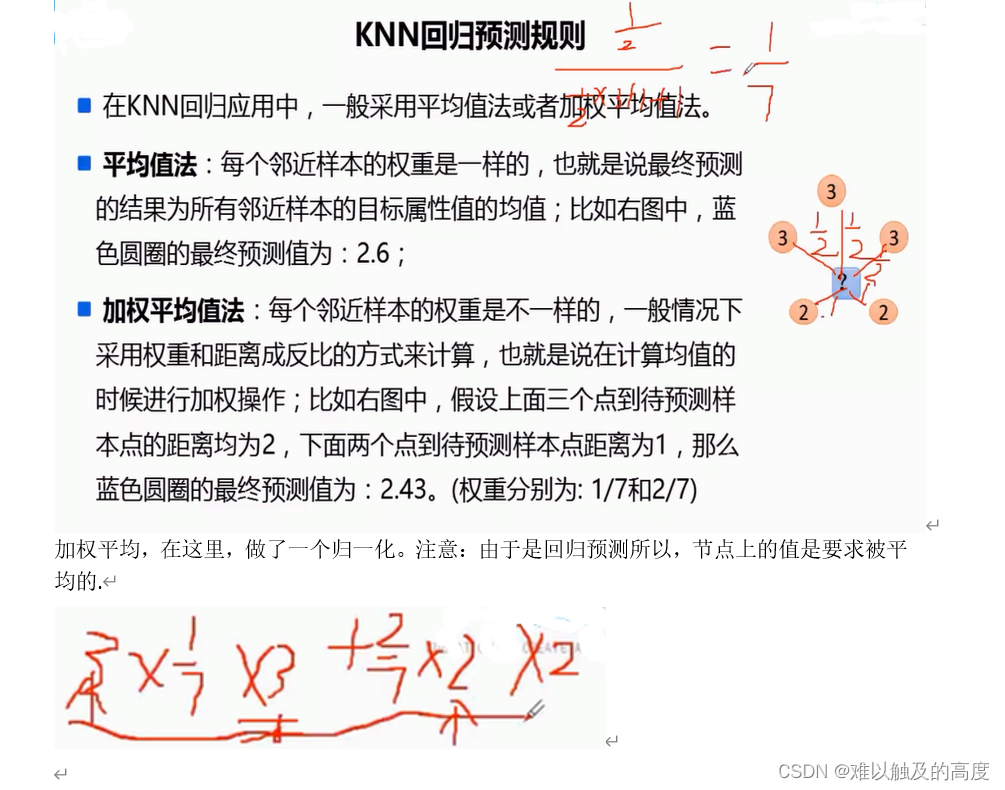 KNN回归预测规则
1/2
= 1/7
在KNN回归应用中，一般采用平均值法或者加权平均值法。
平均值法：每个邻近样本的权重是一样的，也就是说最终预测
的结果为所有邻近样本的目标属性值的均值；比如右图中，蓝
色圆圈的最终预测值为：2.6；
3
3 1/2 1/2 3
? 1/2
2 1 1 2
加权平均值法：每个邻近样本的权重是不一样的，一般情况下
采用权重和距离成反比的方式来计算，也就是说在计算均值的
时候进行加权操作；比如右图中，假设上面三个点到待预测样
本点的距离均为2，下面两个点到待预测样本点距离为1，那么
蓝色圆圈的最终预测值为：2.43。(权重分别为: 1/7和2/7)
加权平均，在这里，做了一个归一化。注意：由于是回归预测所以，节点上的值是要求被平
均的.
3 × 1/7 × 3 + 2/7 × 2 × 2
CSDN @难以触及的高度